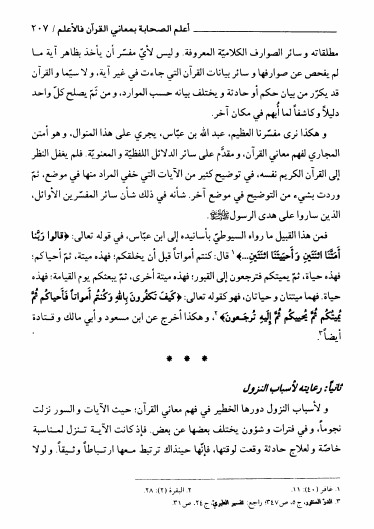 أعلم الصحابة بمعاني القرآن فالأعلم / ٢٠٧
مطلقاته و سائر الصوارف الكلاميّة المعروفة. وليس لأيّ مفسّر أن يأخذ بظاهر آية ما
لم يفحص عن صوارفها و سائر بيانات القرآن التي جاءت في غير آية، و لا سيّما والقرآن
قد يكرّر من بيان حكم أو حادثة و يختلف بيانه حسب الموارد، و من ثَمّ يصلح كلّ واحد
دليلاً وكاشفاً لما أُبهم في مكان آخر.
و هكذا نرى مفسّرنا العظيم، عبد الله بن عبّاس، يجري على هذا المنوال، و هو أمتن
المجاري لفهم معاني القرآن، و مقدَّم على سائر الدلائل اللفظيّة و المعنويّة. فلم يغفل النظر
إلى القرآن الكريم نفسه، في توضيح كثير من الآيات التي خفي المراد منها في موضع، ثمّ
وردت بشيء من التوضيح في موضع آخر. شأنه في ذلك شأن سائر المفسّرين الأوائل،
الذين ساروا على هدى الرسول ﷺ.
فمن هذا القبيل ما رواه السيوطيّ بأسانيده إلى ابن عبّاس، في قوله تعالى: ﴿قالُوا رَبَّنا
أَمَتَّنَا اثْنَتَيْنِ وَ أَحْيَيْتَنَا اثْنَتَيْنِ...﴾١ قال: كنتم أمواتاً قبل أن يخلقكم؛ فهذه ميتة، ثمّ أحياكم؛
فهذه حياة، ثمّ يميتكم فترجعون إلى القبور؛ فهذه ميتة أخرى، ثمّ يبعثكم يوم القيامة؛ فهذه
حياة. فهما ميتتان و حياتان، فهو كقوله تعالى: ﴿كَيْفَ تَكْفُرُونَ بِاللهِ وَكُنْتُمْ أَمواتاً فَأَحْياكُمْ ثُمَّ
يُمِيتُكُمْ ثُمَّ يُحْيِيكُمْ ثُمَّ إِلَيْهِ تُرْجَعُونَ﴾٢، و هكذا أخرج عن ابن مسعود و أبي مالك و قتادة
أيضاً٣.
* * *
ثانياً: رعايته لأسباب النزول
و لأسباب النزول دورها الخطير في فهم معاني القرآن؛ حيث الآيات و السور نزلت
نجوماً، و في فترات و شؤون يختلف بعضها عن بعض. فإذ كانت الآية تنزل لمناسبة
خاصّة و لعلاج حادثة وقعت لوقتها، فإنّها حينذاك ترتبط معها ارتباطاً وثيقاً. و لولا
١. غافر (٤٠): ١١. ٢. البقرة (٢): ٢٨.
٣. الدرّ المنثور، ج ٥، ص ٣٤٧؛ راجع: تفسير الطبري، ج ٢٤، ص ٣١.